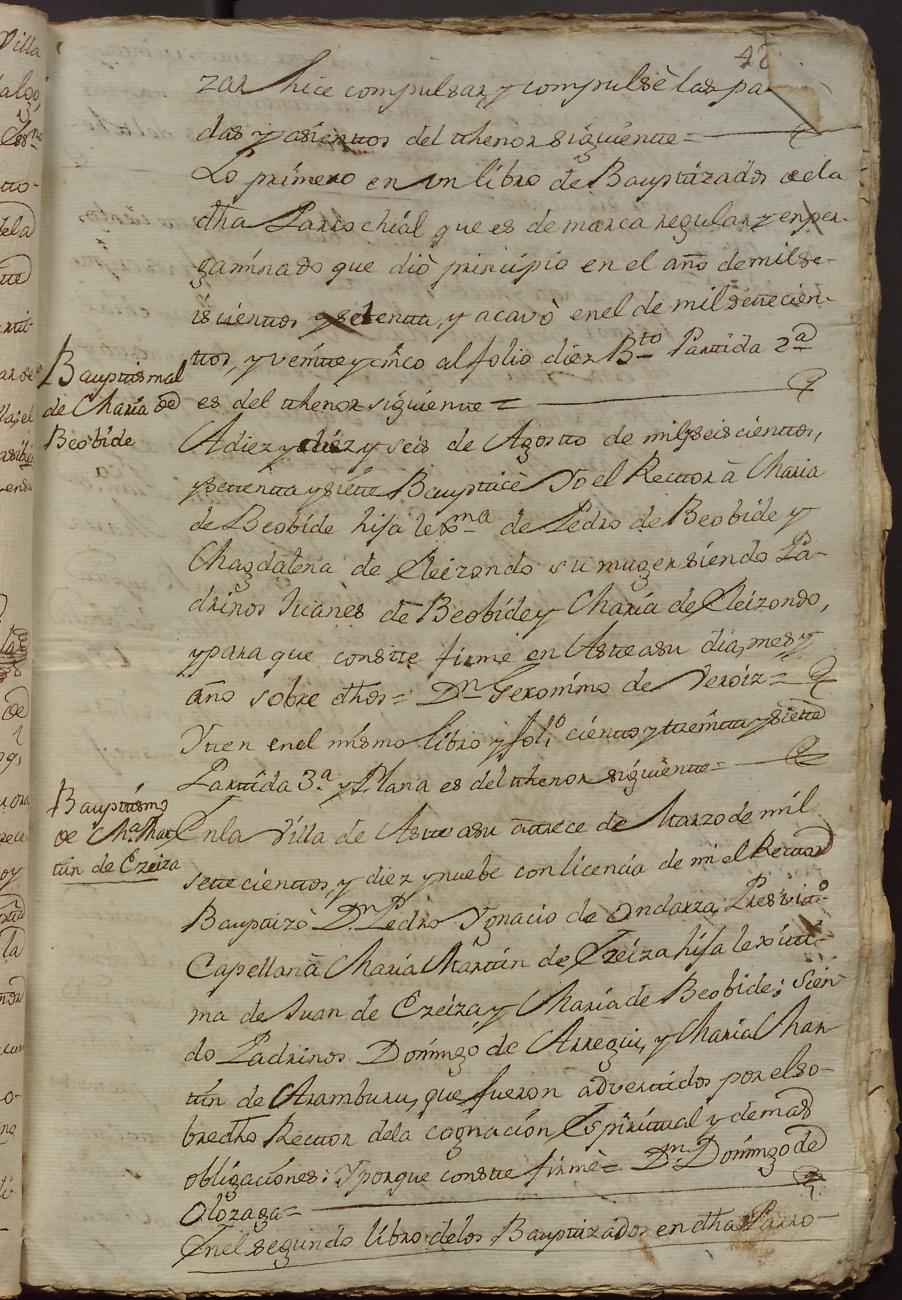 42
zar hice compulsar, y compulsè las par
das y asientos del thenor siguiente =
Lo primero en un libro de Bauptizados de la
dha Parrochial que es de marca regular y enper-
gaminado que diò principio en el año de mil se-
iscientos y setenta, y acavò en el de mil setecien-
tos, y veinte y cinco al folio diez Bto Partida 2a
es del thenor siguiente =
Bauptismal
de Maria de
Beobide
A diez y diez y seis de Agosto de mil seiscientos,
y settenta y siette Bauptizè Yo el Rector à Maria
de Beobide hija lexma de Pedro de Beobide y
Magdalena de Eleizondo su muger siendo Pa-
drinos Juanes de Beobide y Maria de Eleizondo,
y para que conste firmè en Asteasu dia, mes y
año sobre dhos = Dn Geronimo de Veroiz =
Yten en el mismo libro y folio ciento y treinta y siette
Partida 3a y Plana es del thenor siguiente =
Bauptismo
de Ma Mar
tin de Ezeiza
En la Villa de Asteasu à trece de Marzo de mil
sete cientos, y diez y nuebe con licencia de mi el Rector
Bauptizò Dn Pedro Ygnacio de Ondarza Presvito
Capellan à Maria Martin de Ezeiza hija lexiti-
ma de Juan de Ezeiza y Maria de Beobide; sien-
do Padrinos Domingo de Arregui, y Maria Mar
tin de Aramburu, que fueron advertidos por el so-
bredho Rector de la cognación Espiritual y demas
obligaciones: Y porque conste firmè = Dn Domingo de
Olozaga =
En el segundo libro de los Bauptizados en dha Parro-